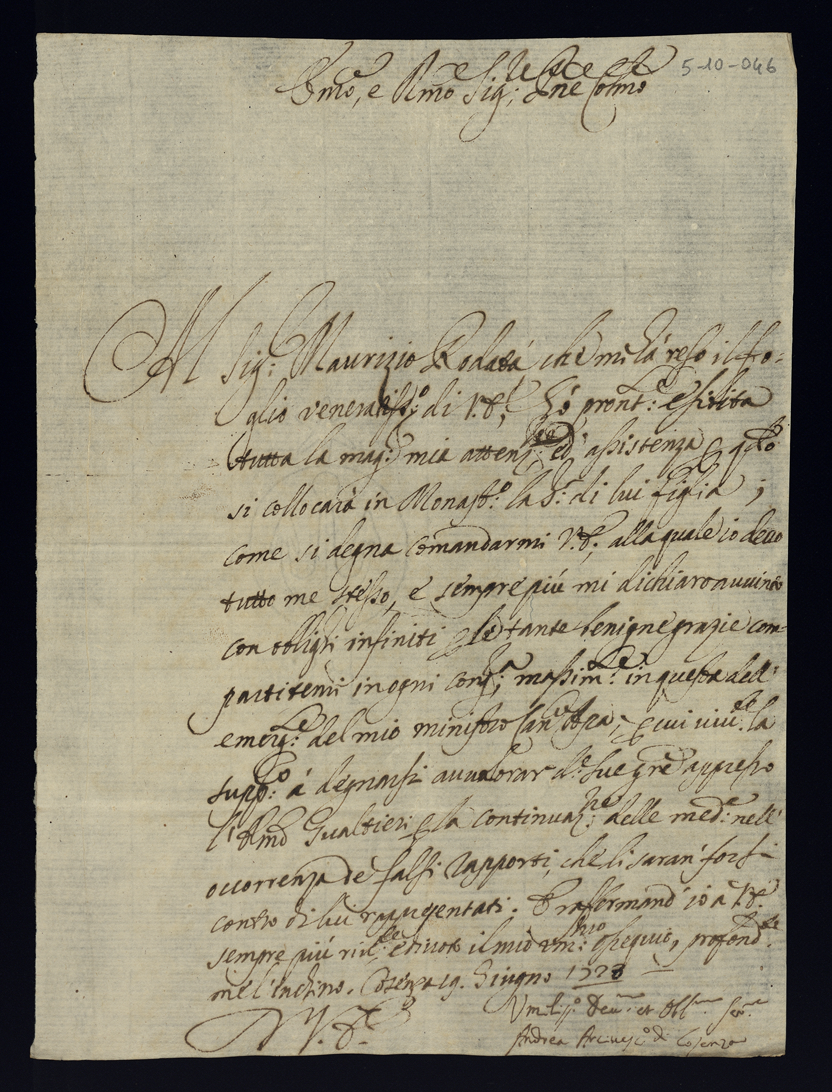 5-10-046
Em̃o, e Rm̃o Sig: Pñe Colm̃o
Al Sig: Maurizio Rodatà che mi hà reso il fo-
glio veneratiss:o di V.E.; hò pront:e esibita
tutta la mag:r mia attenz:ne ed' assistenza, qdo
si collocarà in Monast:o la S:a di lui figlia;
come si degna comandarmi V.E.; alla quale io devo
tutto me stesso, e sempre più mi dichiaro avvinto
con oblighi infiniti p le tante benigne grazie com-
partitemi in ogni cong:a, massim:e in questa dell'
emerg:e del mio ministro p cui vivi:te la
supp:o à degnarsi avvalorar d:e sue gr̃e appresso
l'Rm̃o Gualtieri p la continuaz:ne delle med:e nell'
occorrenza de falsi rapporti, che li saran' forsi
contro di lui rappresentati. E raffermand' io a V.E.
sempre più riv:te e divoto il mio um:mo ossequio, profond:te
me l'inchino. Cosenza 19. Giugno 1723
D V. E.
Umiliss:o Dev:mo et Obl:mo Ser:re
Andrea Arcivesc:o di Cosenza